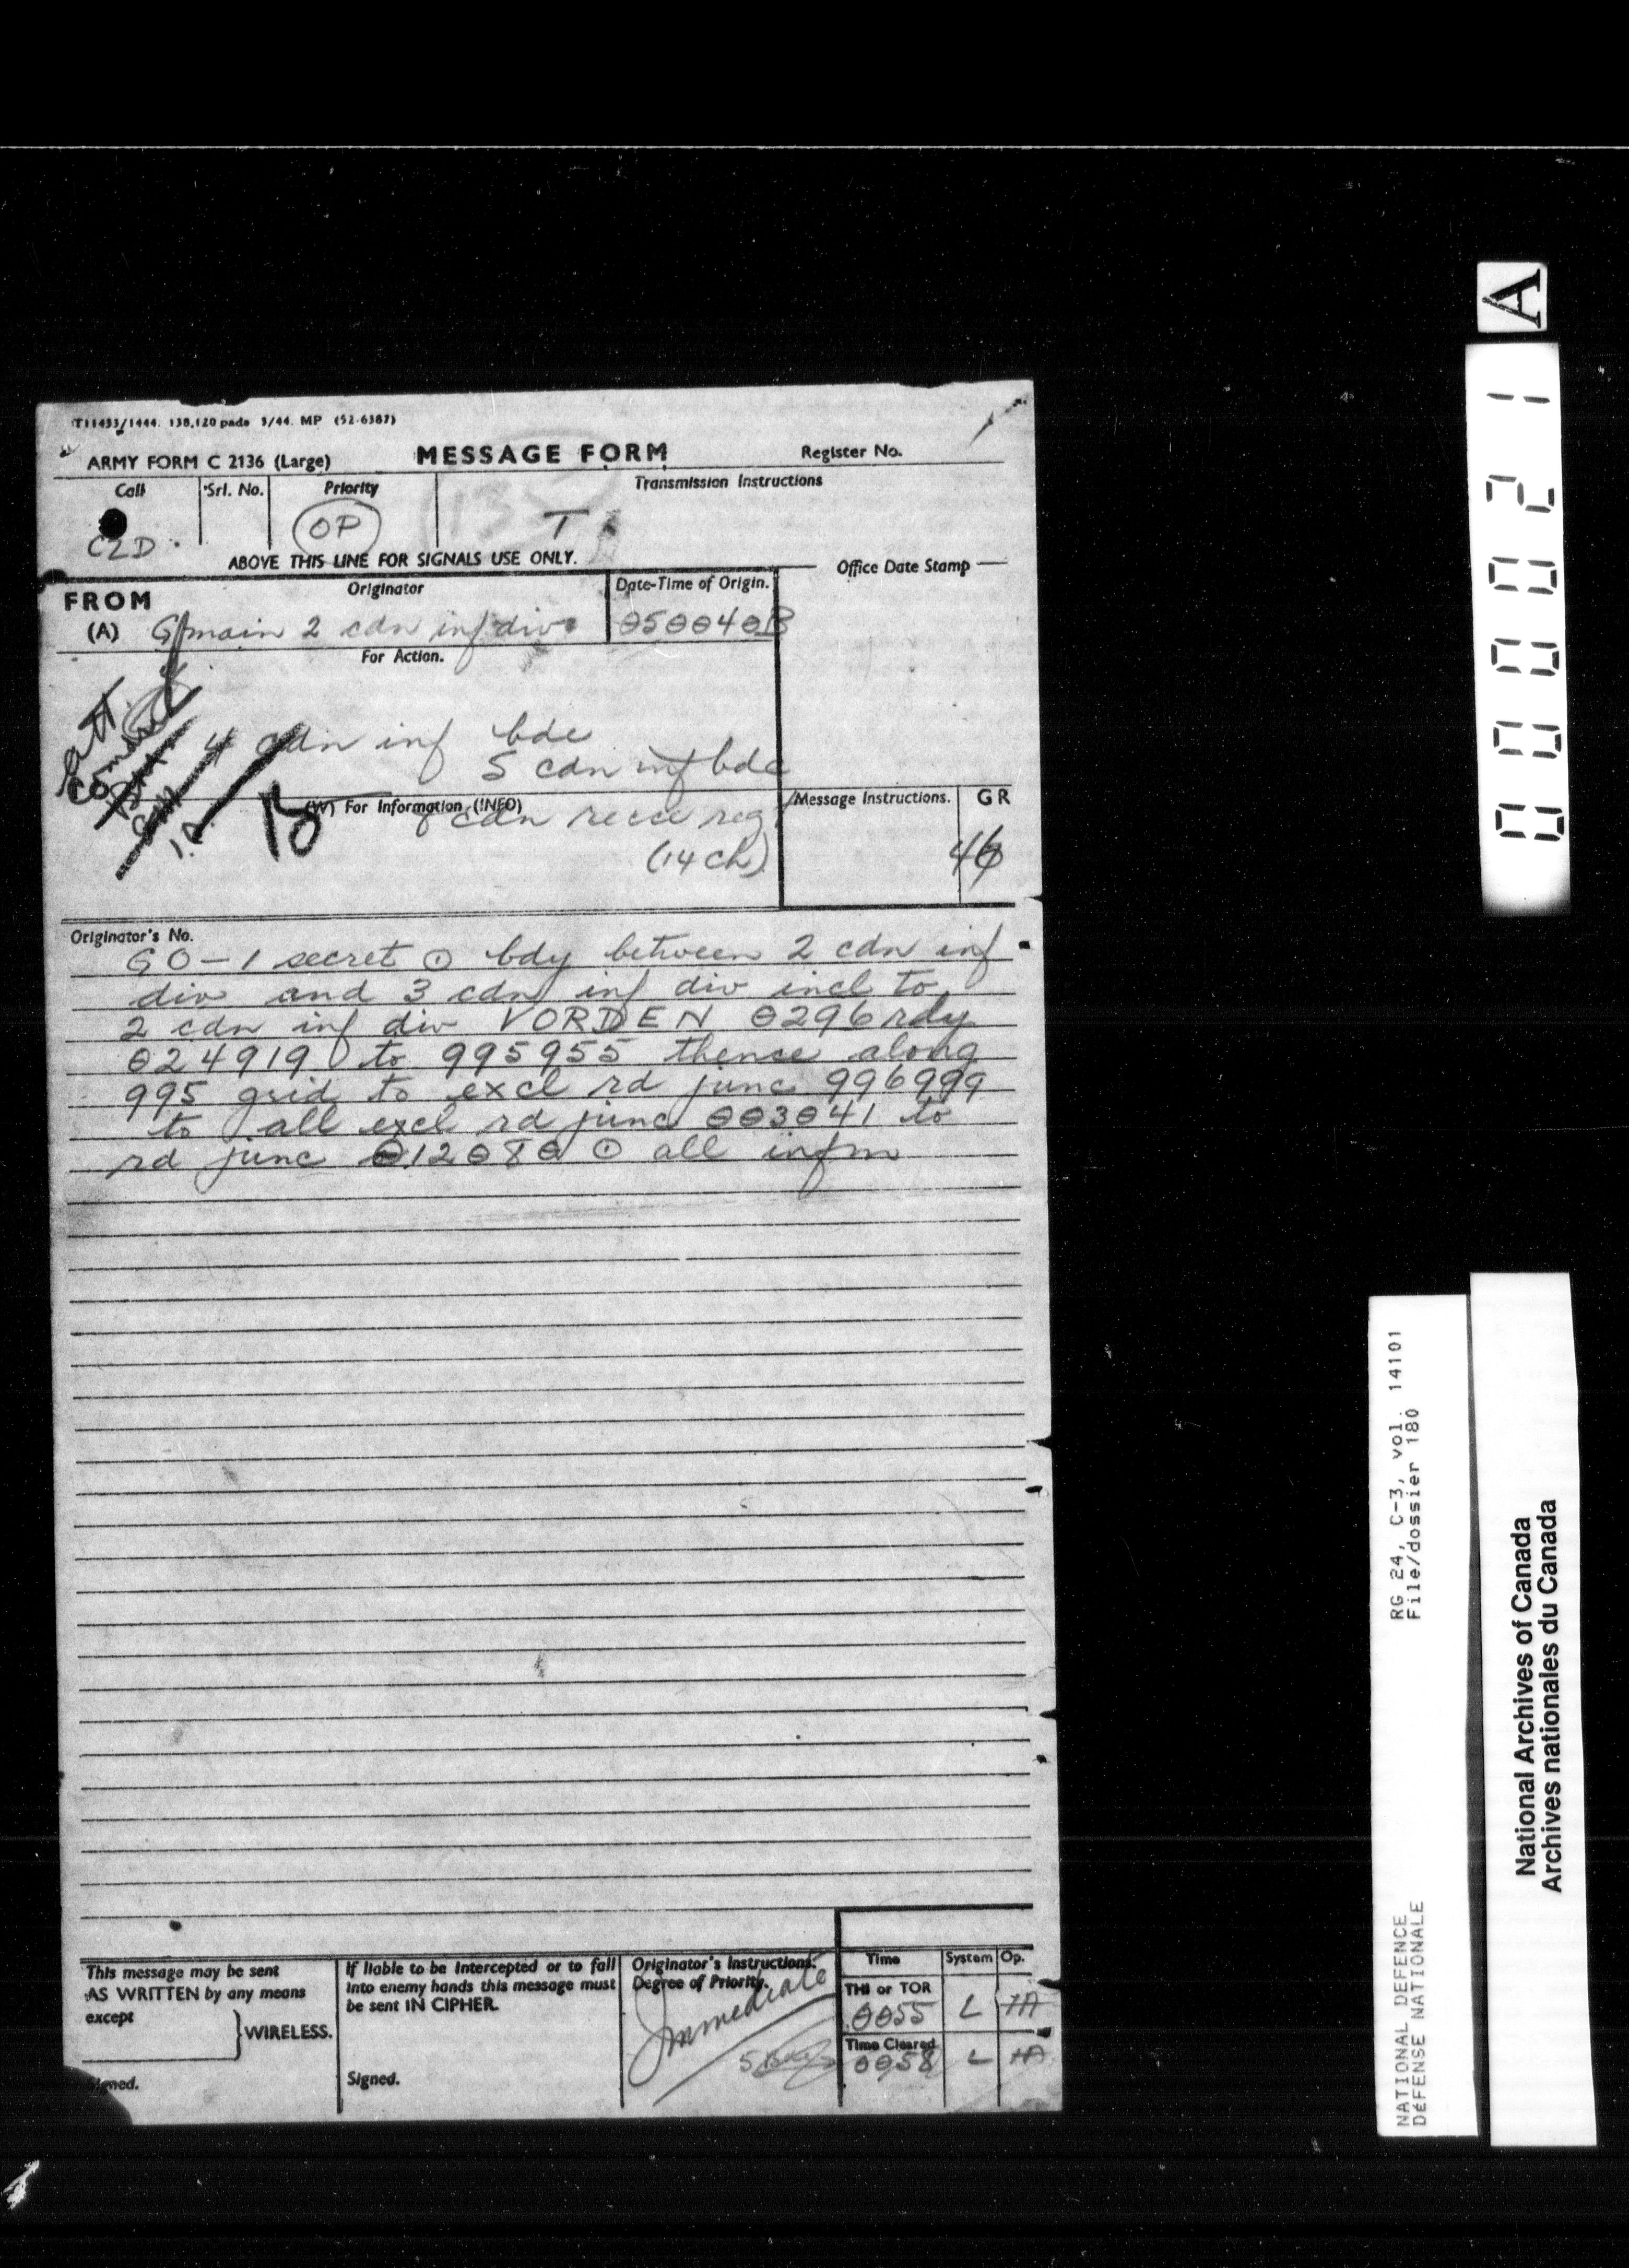 T11433/1444. 130,120 pads 3/44. MP (52-6387)
ARMY FORM C 2136 (Large)
MESSAGE FORM
Register No.
Call
Srl. No.
Priority
Transmission Instructions
CZD
OP
T
ABOVE THIS LINE FOR SIGNALS USE ONLY.
Office Date Stamp
FROM
Originator
Date-Time of Origin.
(A) G main 2 cdn inf div
050040B
For Action.
4 cdn inf bde
5 cdn inf bde
(W) For Information (INFO)
Message Instructions.
GR
cdn recce reg
(14 ch)
46
Originator's No.
GO-1 secret ⊙ bdy between 2 cdn inf
div and 3 cdn inf div incl to
2 cdn inf div VORDEN 0296 rdy
024919 to 995955 thence along
995 grid to excl rd junc 996999
to all excl rd junc 003041 to
rd junc 012080 ⊙ all infm
This message may be sent
AS WRITTEN by any means
except
WIRELESS.
Signed.
If liable to be intercepted or to fall
into enemy hands this message must
be sent IN CIPHER.
Signed.
Originator's Instructions.
Degree of Priority.
Immediate
Time
System
Op.
THI or TOR
0055 L HA
Time Cleared
0058 L HA
A
000021
RG 24, C-3, vol. 14101
File/dossier 180
NATIONAL DEFENCE
DÉFENSE NATIONALE
National Archives of Canada
Archives nationales du Canada